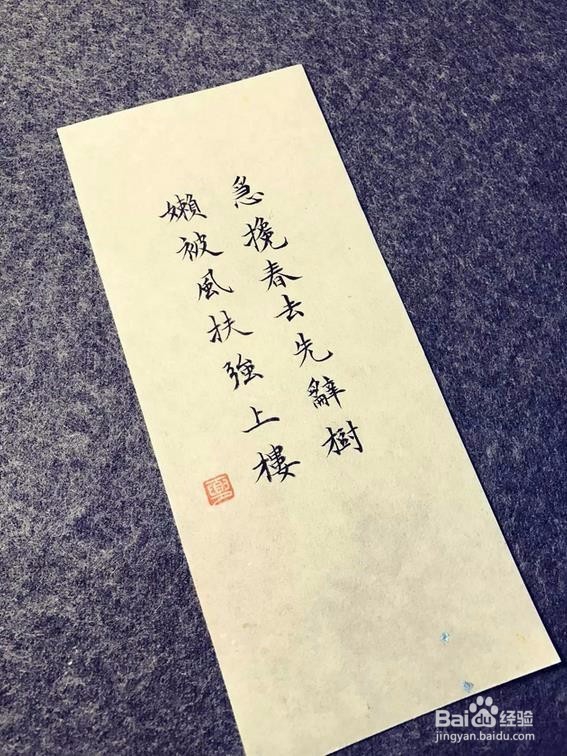 急挽春去先辭樹
嬾被風扶強上樓
Baidu经验
jingyan.baidu.com